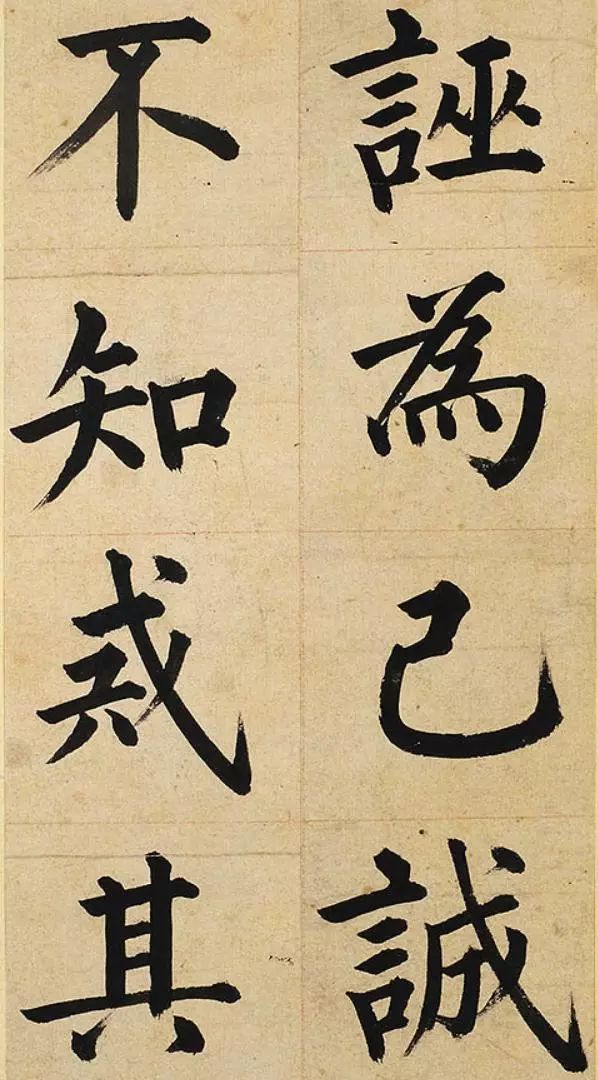 誣為己誠
不知戒其